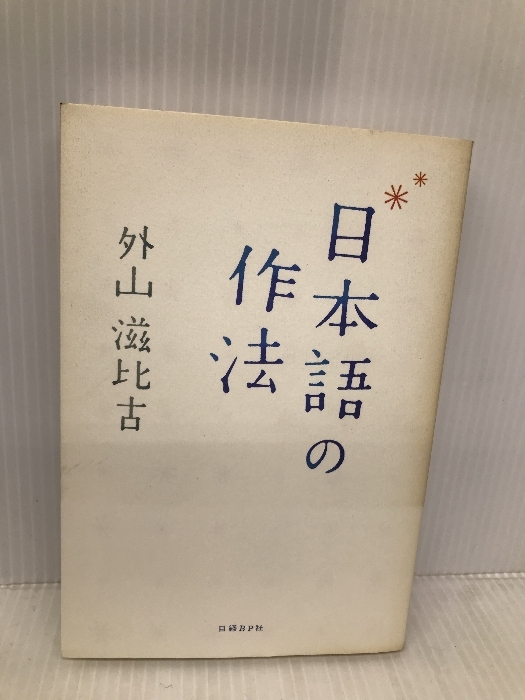 日本語の
作法
外山 滋比古
日経BP社